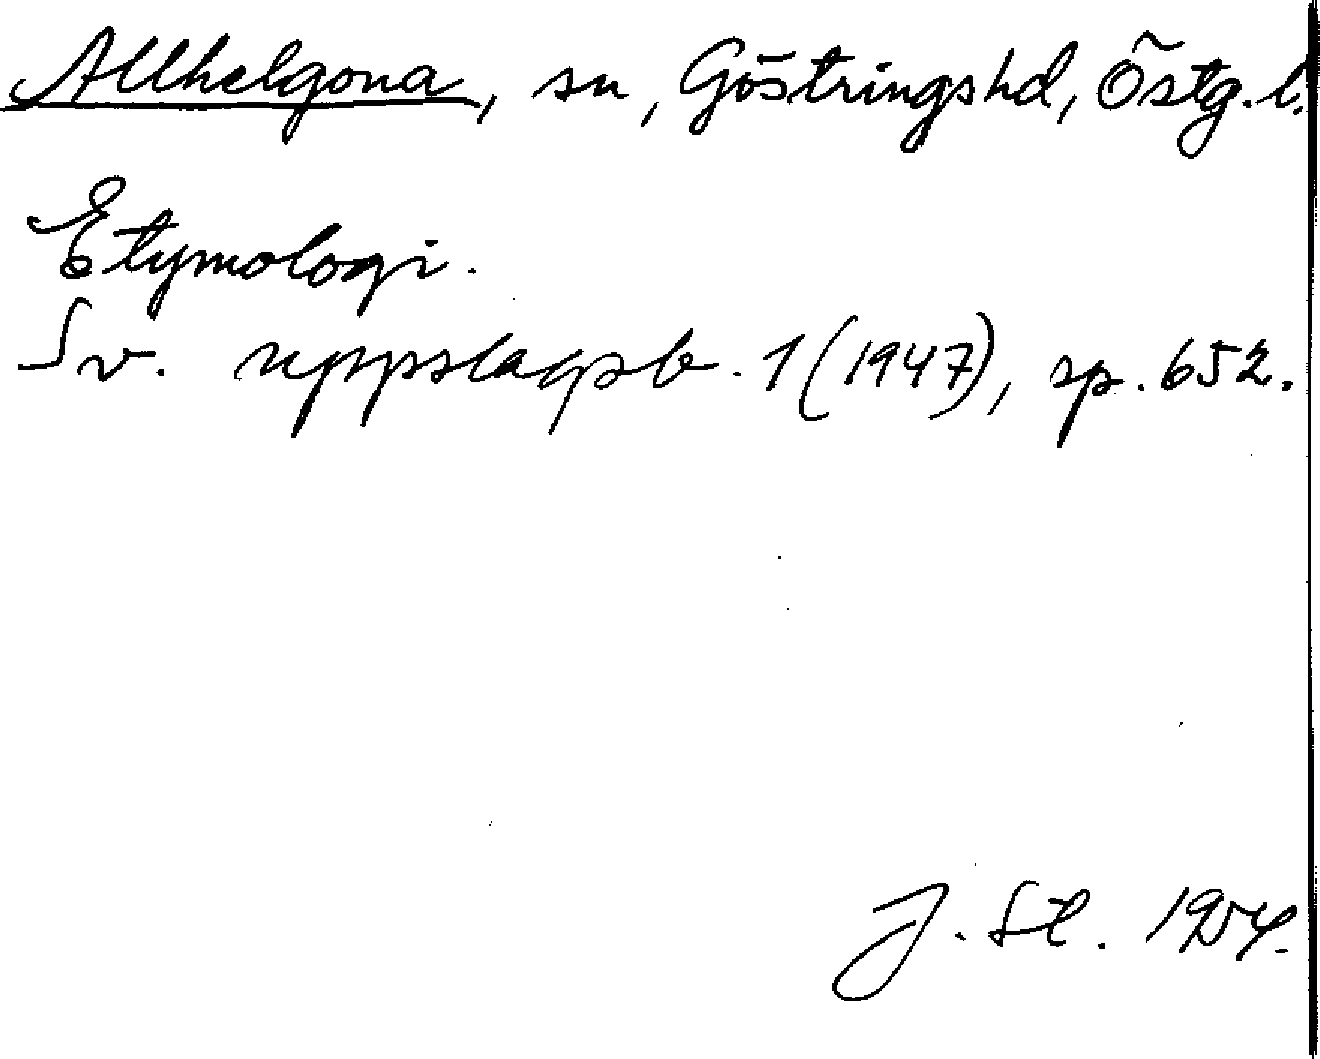 Allhelgona, sn, Göstringshd, Östg. l.
Etymologi.
Sv. uppslagsb. 1 (1947), sp. 652.
J. St. 1954.